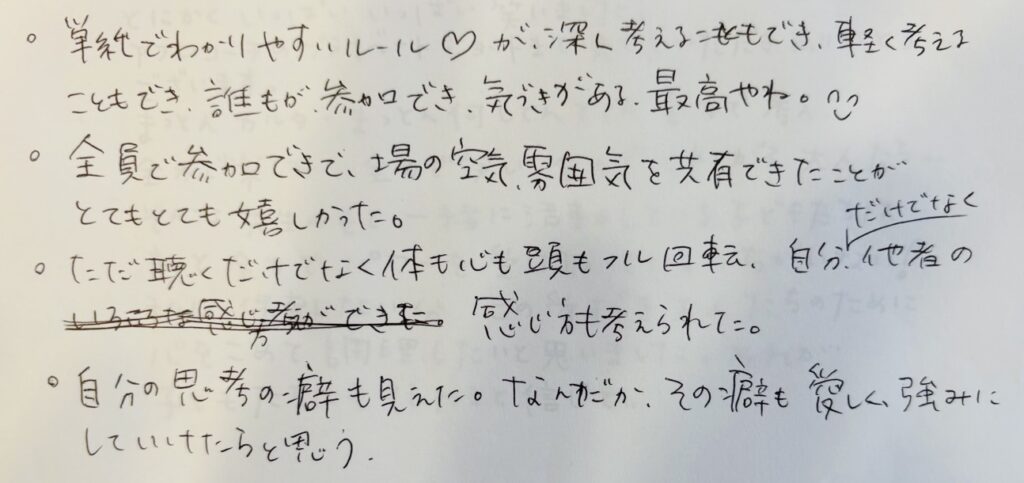 。単純でわかりやすいルール♡が深く考えることもでき、軽く考える
こともでき、誰もが参加でき、気づきがある、最高やね。
。全員で参加できて、場の空気、雰囲気を共有できたことが
とてもとても嬉しかった。
。ただ聴くだけでなく体も心も頭もフル回転、自分だけでなく、他者の
いろいろな感じ方考がができた。感じ方も考えられてた。
。自分の思い考の癖も見えた。なんだか、その癖も愛しく、強みに
していけたらと思う.